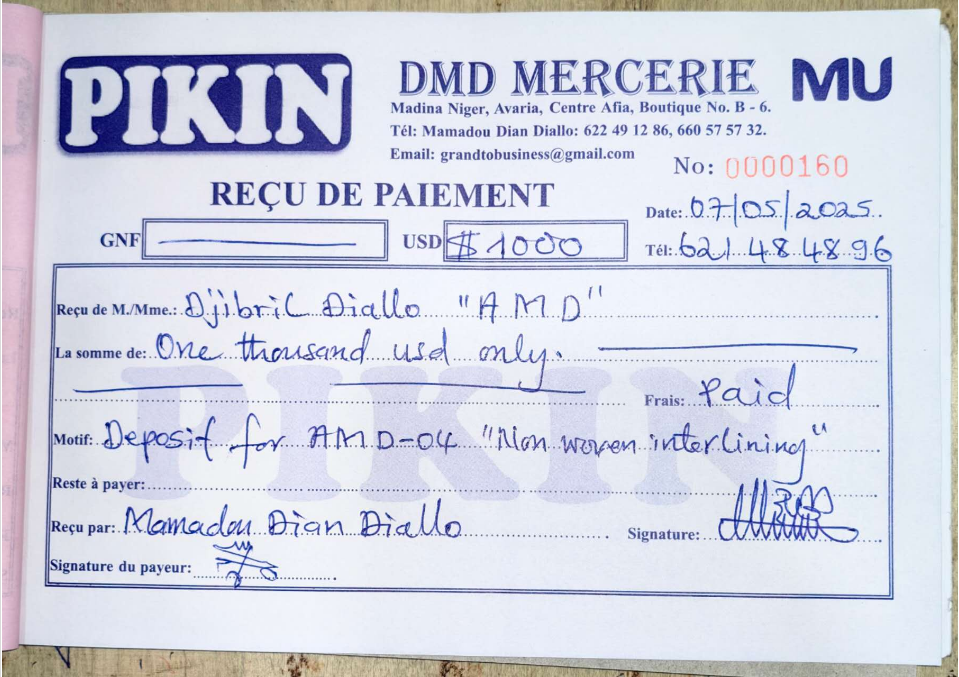 PIKIN
DMD MERCERIE
MU
Madina Niger, Avaria, Centre Afia, Boutique No. B - 6.
Tél: Mamadou Dian Diallo: 622 49 12 86, 660 57 57 32.
Email: grandtobusiness@gmail.com
No: 0000160
REÇU DE PAIEMENT
Date: 07/05/2025
GNF
USD $ 1000
Tél: 621 48 48 96
Reçu de M./Mme.: Djibril Diallo "AMD"
La somme de: One thousand usd only.
Frais: Paid
Motif: Deposit for AMD-04 "Non woven interlining"
Reste à payer:
Reçu par: Mamadou Dian Diallo
Signature:
Signature du payeur:
PIKIN